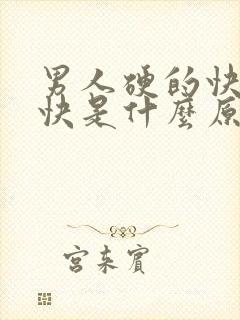 男人硬的快
快是什麼原
宫来賓